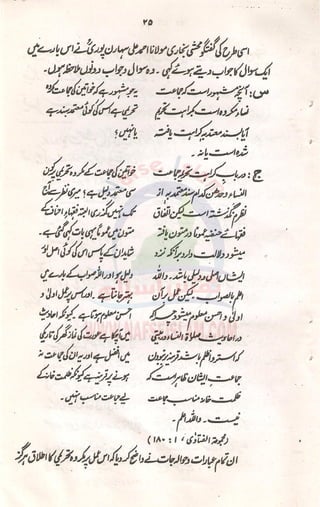 ۲۵
اسی طرح کی گفتگو محشی بخاری مولانا احمد علی سہارن پوری نے اس بارے میں
ایک سوال کا جواب دیتے ہوئے کی۔ وہ سوال و جواب دونوں ملاحظہ ہوں۔
س: آنچہ مشہور است کہ جماعت
نساء مکروہ است بکراہت تحریم
آیا سند معتد بہ کراہت یافتہ
شدہ است یا نہ۔
یہ جو مشہور ہے کہ خواتین کی جماعت مکروہ
تحریمی ہے اس کی کوئی معتمد سند ہے
یا نہیں؟
ج: در باب کراہت تحریمہ جماعت
النساء وحدھن کدام سند معتمد بہ از
نظرم نگذشتہ است لیکن اتفاق
فقہائے حنفیہ عموماً در متون یافتہ
میشود دلالت دارد برآنکہ نزد
ایشاں اصلی و دلیلی باشد۔ واللہ
اعلم بالصواب لیکن عمل برآں
اولیٰ و احسن معلوم میشود چرا کہ
در احادیث صلوٰۃ النساء در بیتہن
کہ استر و اظلم باشد قرینہ بر نبودن
جماعت ایشان ظاہر است کہ
ظلمت خانہ مناسب جماعت
نیست۔ واللہ اعلم۔
خواتین کی جماعت کے مکروہ تحریمی ہونے کی کون
سی معتمد دلیل ہے؟ میری نظر سے آج
تک نہیں گذری البتہ فقہاءِ احناف کے
متون میں عموماً یہی بات کہی گئی ہے۔
شاید ان کے پاس اس کی کوئی اصل اور
دلیل ہو اور اللہ صواب کے بارے میں
بہتر جانتا ہے۔ اور اس پر عمل اولیٰ و
احسن معلوم ہوتا ہے۔ کیونکہ احادیث
میں آچکا ہے عورت کی نماز گھر کی تاریکی
میں افضل ہے اور یہ ان کی جماعت نہ
ہونے پر قرینہ ہے کیونکہ ظلمت خانہ کے
لیے جماعت مناسب نہیں۔
(مجموعۃ الفتاویٰ، ۱: ۱۸۰)
ان تمام عبارات و حوالہ جات نے واضح کر دیا کہ اس عمل پر مکروہ تحریمی کا اطلاق ہرگز